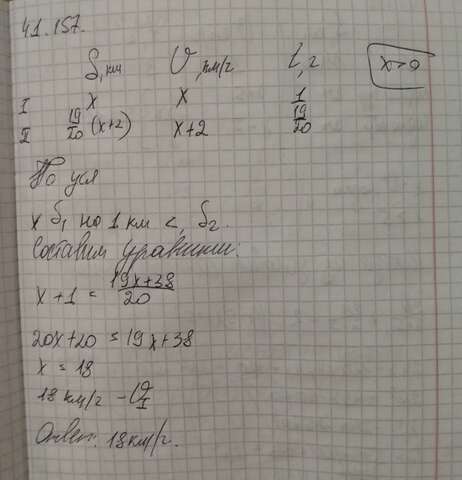 41.157.
S, км V, км/г t, г x>0
I x x 1
II 19/20 (x+2) x+2 19/20
По усл
x S₁ на 1 км < S₂.
Составим уравнение:
x+1 = 19x+38/20
20x+20 = 19x+38
x = 18
18 км/г - V I
Ответ: 18 км/г.